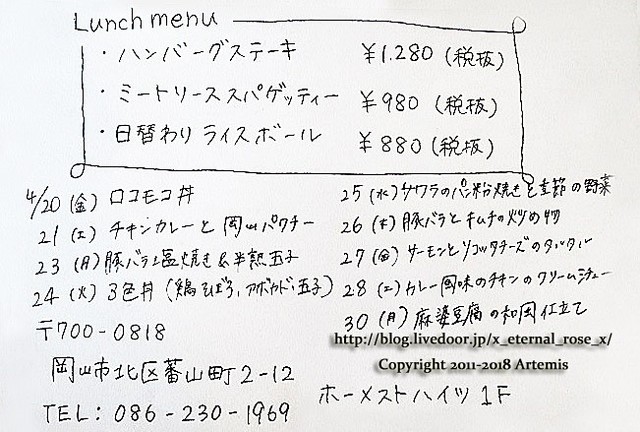 Lunch menu
・ハンバーグステーキ ￥1.280(税抜)
・ミートソーススパゲッティー ￥980(税抜)
・日替わりライスボール ￥880(税抜)
4/20(金)ロコモコ丼
21(土)チキンカレーと岡山パクチー
23(月)豚バラ塩焼き&半熟玉子
24(火)3色丼(鶏そぼろ,アボカド,玉子)
25(水)サワラのパン粉焼きと季節の野菜
26(木)豚バラとキムチの炒め物
27(金)サーモンとリコッタチーズのタルタル
28(土)カレー風味のチキンのクリームシチュー
30(月)麻婆豆腐の和風仕立て
〒700-0818
岡山市北区蕃山町2-12
ホーメストハイツ1F
TEL:086-230-1969
http://blog.livedoor.jp/x_eternal_rose_x/
Copyright 2011-2018 Artemis